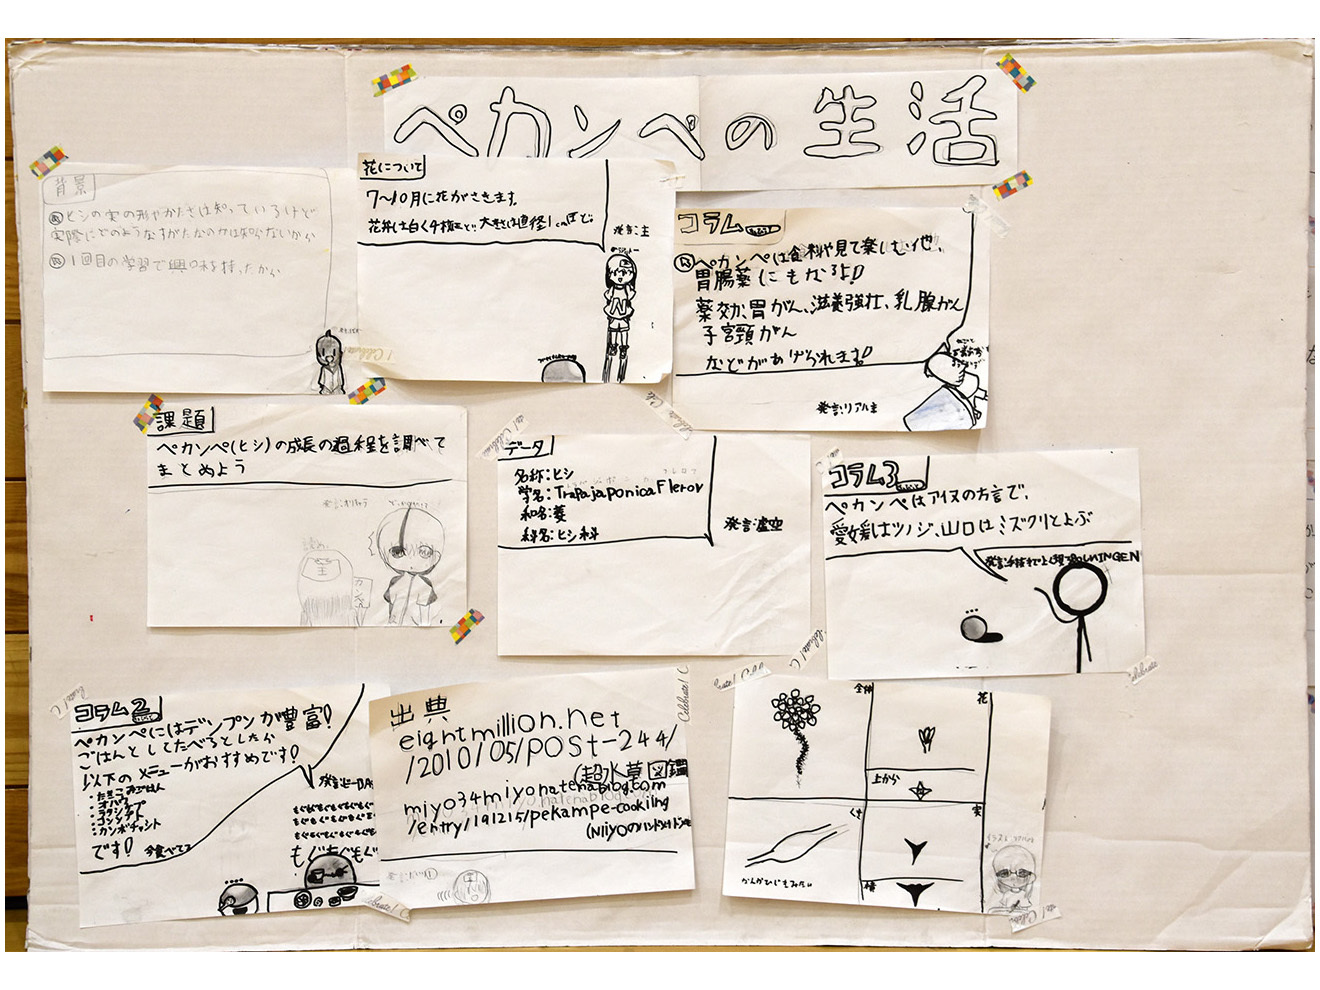 ペカンペの生活
背景
ヒシの実の形やかたさは知っているけど
実際にどのようなすがたなのかは知らないから
1回目の学習で興味を持ったから
花について
7〜10月に花がさきます。
花弁は白く4枚ほど。大きさは直径1cmほど。
発言:主
コラム
ペカンペは食料や見て楽しむ他、
胃腸薬にもなるよ!
薬効、胃がん、滋養強壮、乳腺がん
子宮頸がん
などがあげられます!
発言:リアル主
課題
ペカンペ(ヒシ)の成長の過程を調べて
まとめよう
データ
名称:ヒシ
学名:Trapa japonica Flerov
和名:菱
科名:ヒシ科
発言:虚空
コラム3
ペカンペはアイヌの方言で、
愛媛はツノジ、山口はミズクリとよぶ
コラム2
ペカンペにはデンプンが豊富!
ごはんとしてたべるとしたら
以下のメニューがおすすめです!
・たきこみごはん
です! 今食べてる
もぐもぐもぐもぐもぐもぐ
もぐもぐもぐもぐもぐもぐ
もぐもぐもぐもぐもぐもぐ
もぐもぐもぐ
出典
eightmillion.net
/2010/05/post-244/
(超水草図鑑
miyo34miyo.hatenablog.com
/entry/191215/pekampe-cooking
全体
花
上から
くき
実
横